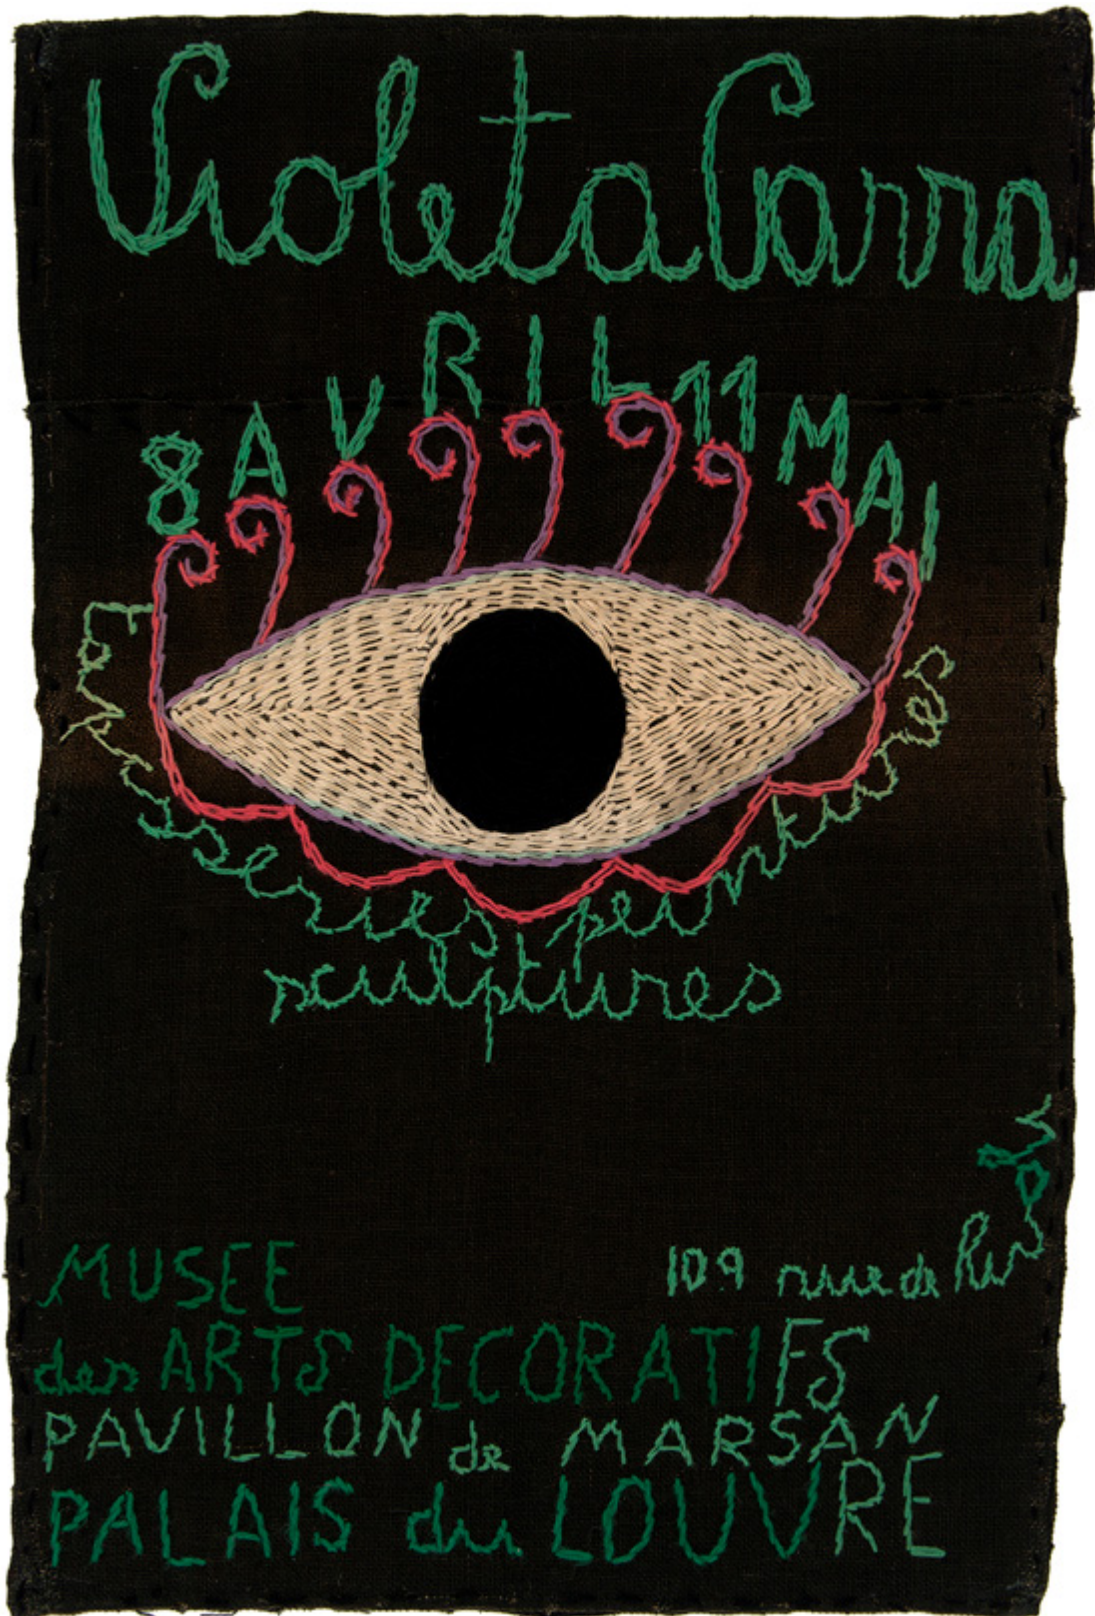 Violeta Parra
8 AVRIL 11 MAI
Tapisseries peintures
sculptures
109 rue de Rivoli
MUSEE
des ARTS DECORATIFS
PAVILLON de MARSAN
PALAIS du LOUVRE